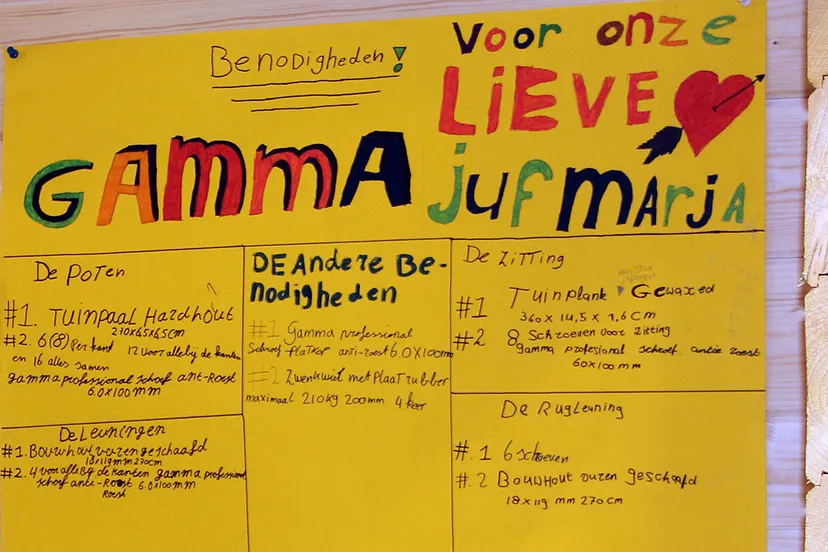 Benodigheden!
Voor onze
LiEVE
GAMMA
jufmarja
De Poten
#1. Tuinpaal Hardhout
270x65x65cm
#2. 6(8) Per kant 12 voor allebij de kanten
en 16 alles samen
gamma professional schoef ant-Roest
6.0x100mm
De Leuningen
#1. Bouwhout vuren geschaafd
18x119mm 270cm
#2. 4 voor alle Bij de kanten gamma professional
schoef anti-Roest 6.0x100mm
Roest
DE Andere Be-
nodigheden
#1 Gamma professional
Schroef Platkop anti-roest 6.0x100mm
#2 Zwenkwiel met Plaat rubber
maximaal 210kg 200mm 4 keer
De Zitting
#1 Tuinplank Gewaxed
360 x 14,5 x 1,6 cm
#2 8 Schroeven voor zitting
gamma profesional schroef antie roest
60x100mm
De Rugleuning
#.1 6 schroeven
#.2 Bouwhout vuren geschaafd
18x119 mm 270 cm